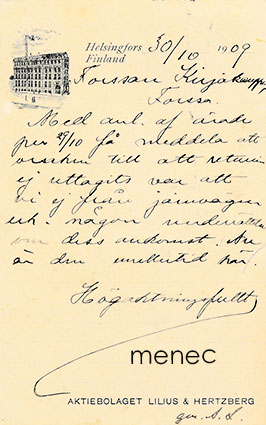 Helsingfors 30/10 1909
Finland
Forssan Kirjakauppa,
Forssa.
Med anl. af ärade
per 29/10 få meddela att
orsaken till att returen
ej uttagits var att
vi ej från järnvägen
erh. någon underrättelse
om dess ankomst. Nu
är den emellertid här.
Högaktningsfullt
menec
AKTIEBOLAGET LILIUS & HERTZBERG
gm.